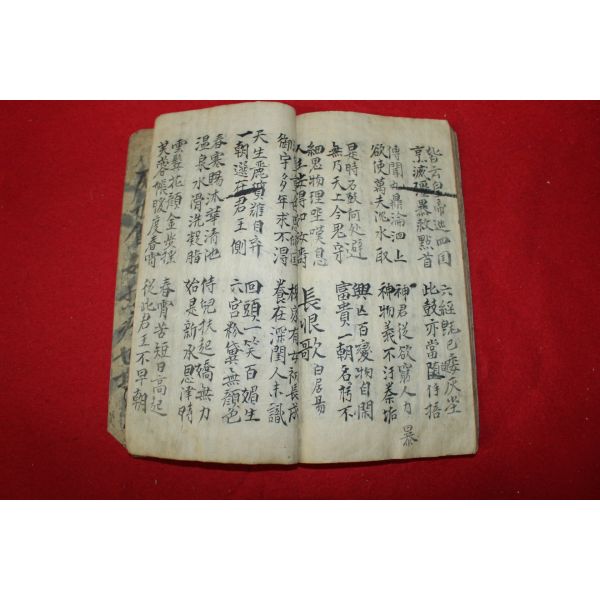 皆云皇帝巡四国 六經既已委灰塵
烹滅强暴救黔首 此鼓亦當随掊
傳聞九鼎淪泗上 神君從欲窮人力 暴
欲使萬夫沉水取 神物義不汙秦垢
是時石鼓何處避 興亡百變物自閑
無乃天上令鬼守 富貴一朝名朽不
細思物理坐嘆息 長恨歌 白居易
人生安得如汝壽 楊家有女初長成
御宇多年求不得 養在深閨人未識
天生麗質難自弃 回頭一笑百媚生
一朝選在君王側 六宮粉黛無顔色
春寒賜沐華清池 侍兒扶起嬌無力
温泉水滑洗凝脂 始是新承恩澤時
雲鬢花顔金步摇 春宵苦短日高起
芙蓉帳暖度春宵 從此君王不早朝